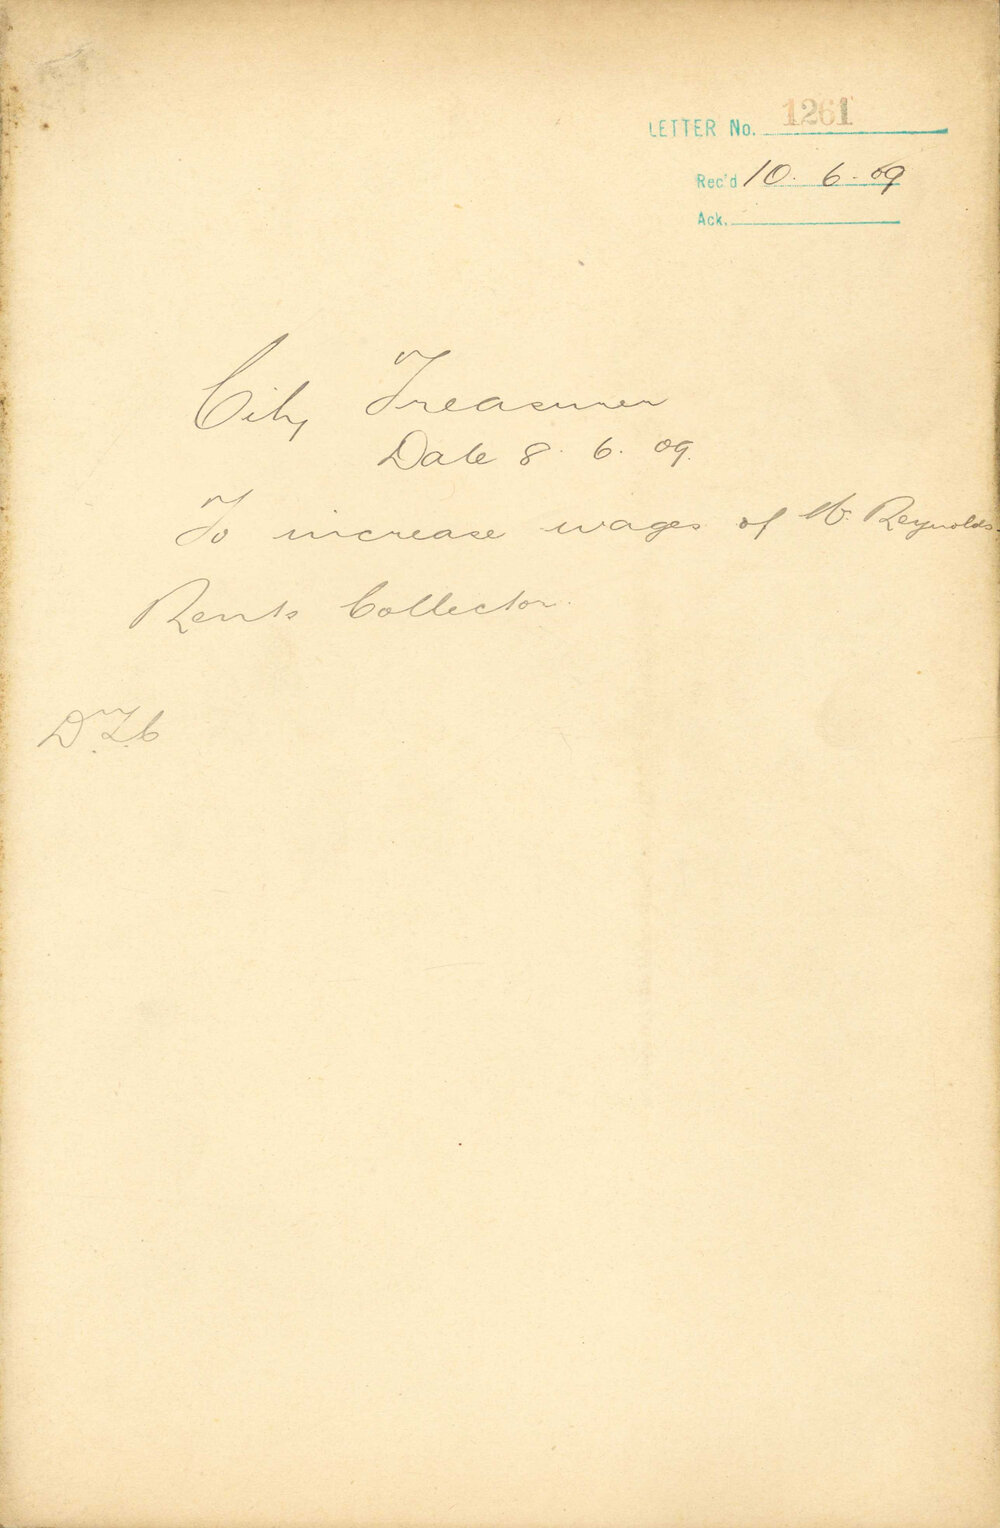 LETTER No. 1261
Rec'd 10. 6. 09
Ack.
City Treasurer
Date 8. 6. 09.
To increase wages of W. Reynolds.
Rents Collector.